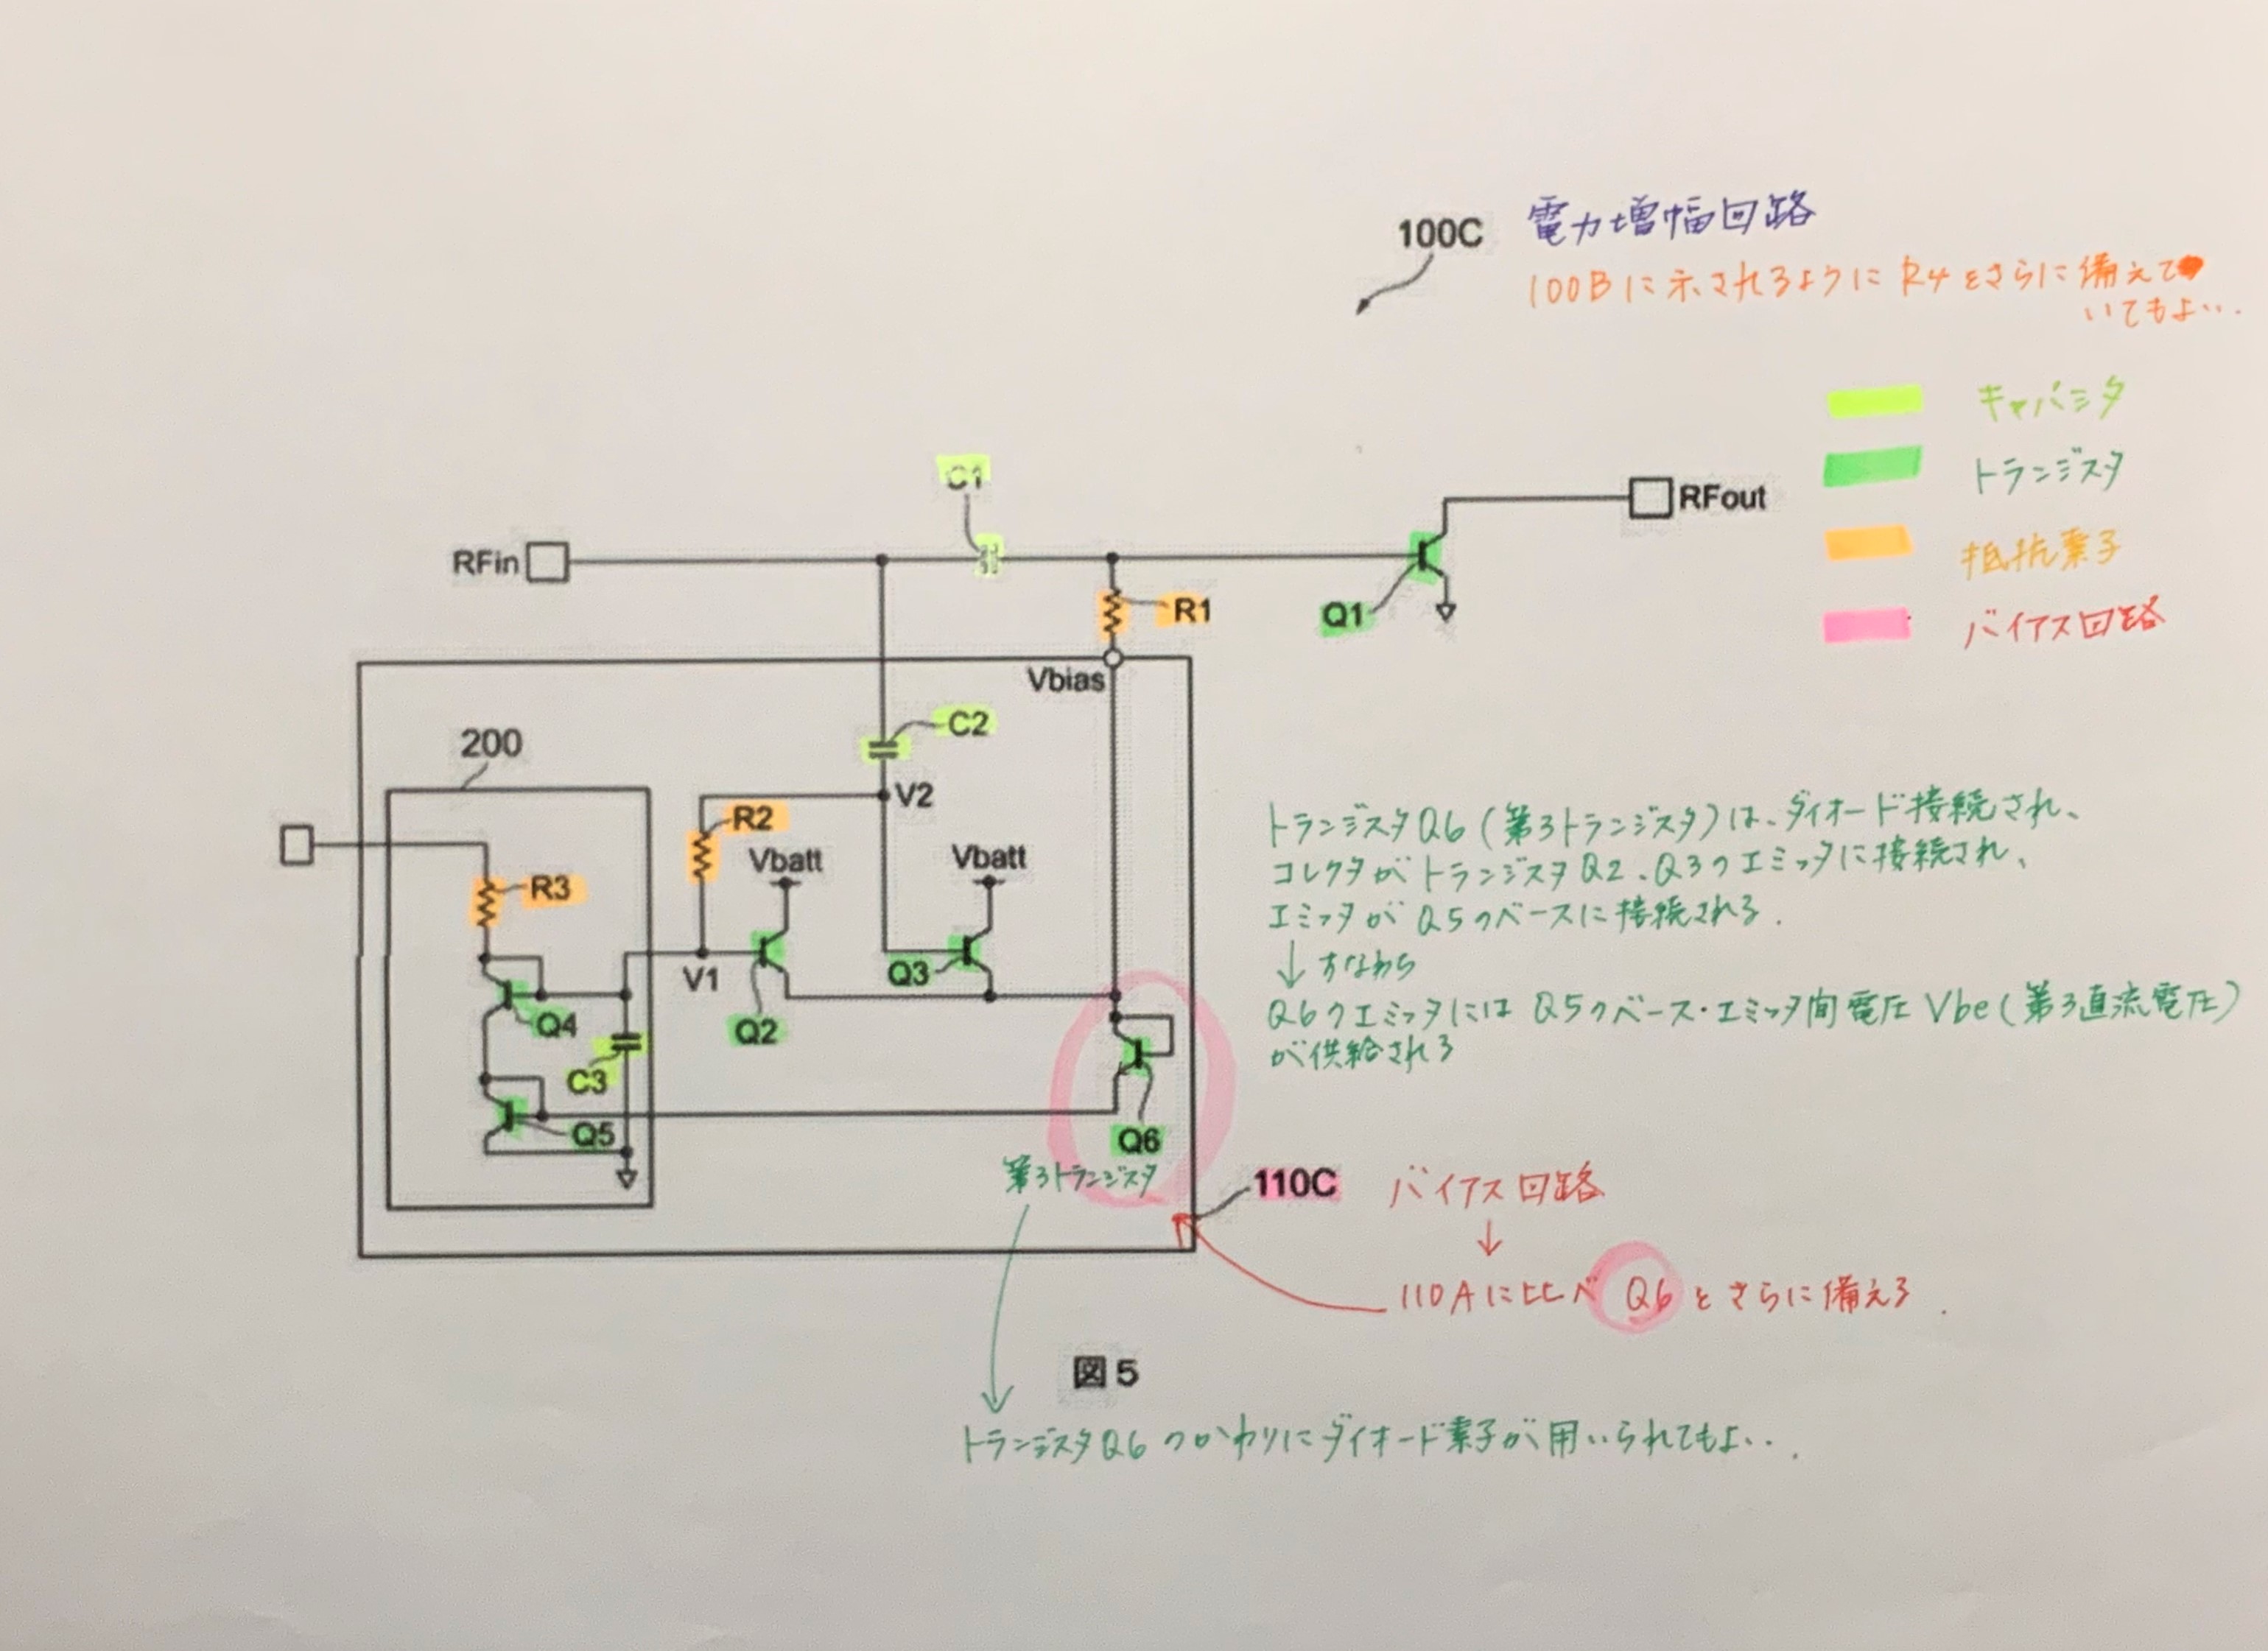 100C 電力増幅回路
100Bに示されるようにR4をさらに備えて
いてもよい.
キャパシタ
トランジスタ
抵抗素子
バイアス回路
C1
RFin
RFout
R1
Q1
Vbias
C2
200
V2
R2
Vbatt
Vbatt
R3
V1
Q3
Q4
Q2
C3
Q5
Q6
トランジスタQ6(第3トランジスタ)は、ダイオード接続され、
コレクタがトランジスタQ2、Q3のエミッタに接続され、
エミッタがQ5のベースに接続される.
↓すなわち
Q6のエミッタにはQ5のベース・エミッタ間電圧Vbe(第3直流電圧)
が供給される
第3トランジスタ
110C バイアス回路
↓
110Aに比べQ6をさらに備える.
図5
トランジスタQ6のかわりにダイオード素子が用いられてもよい.